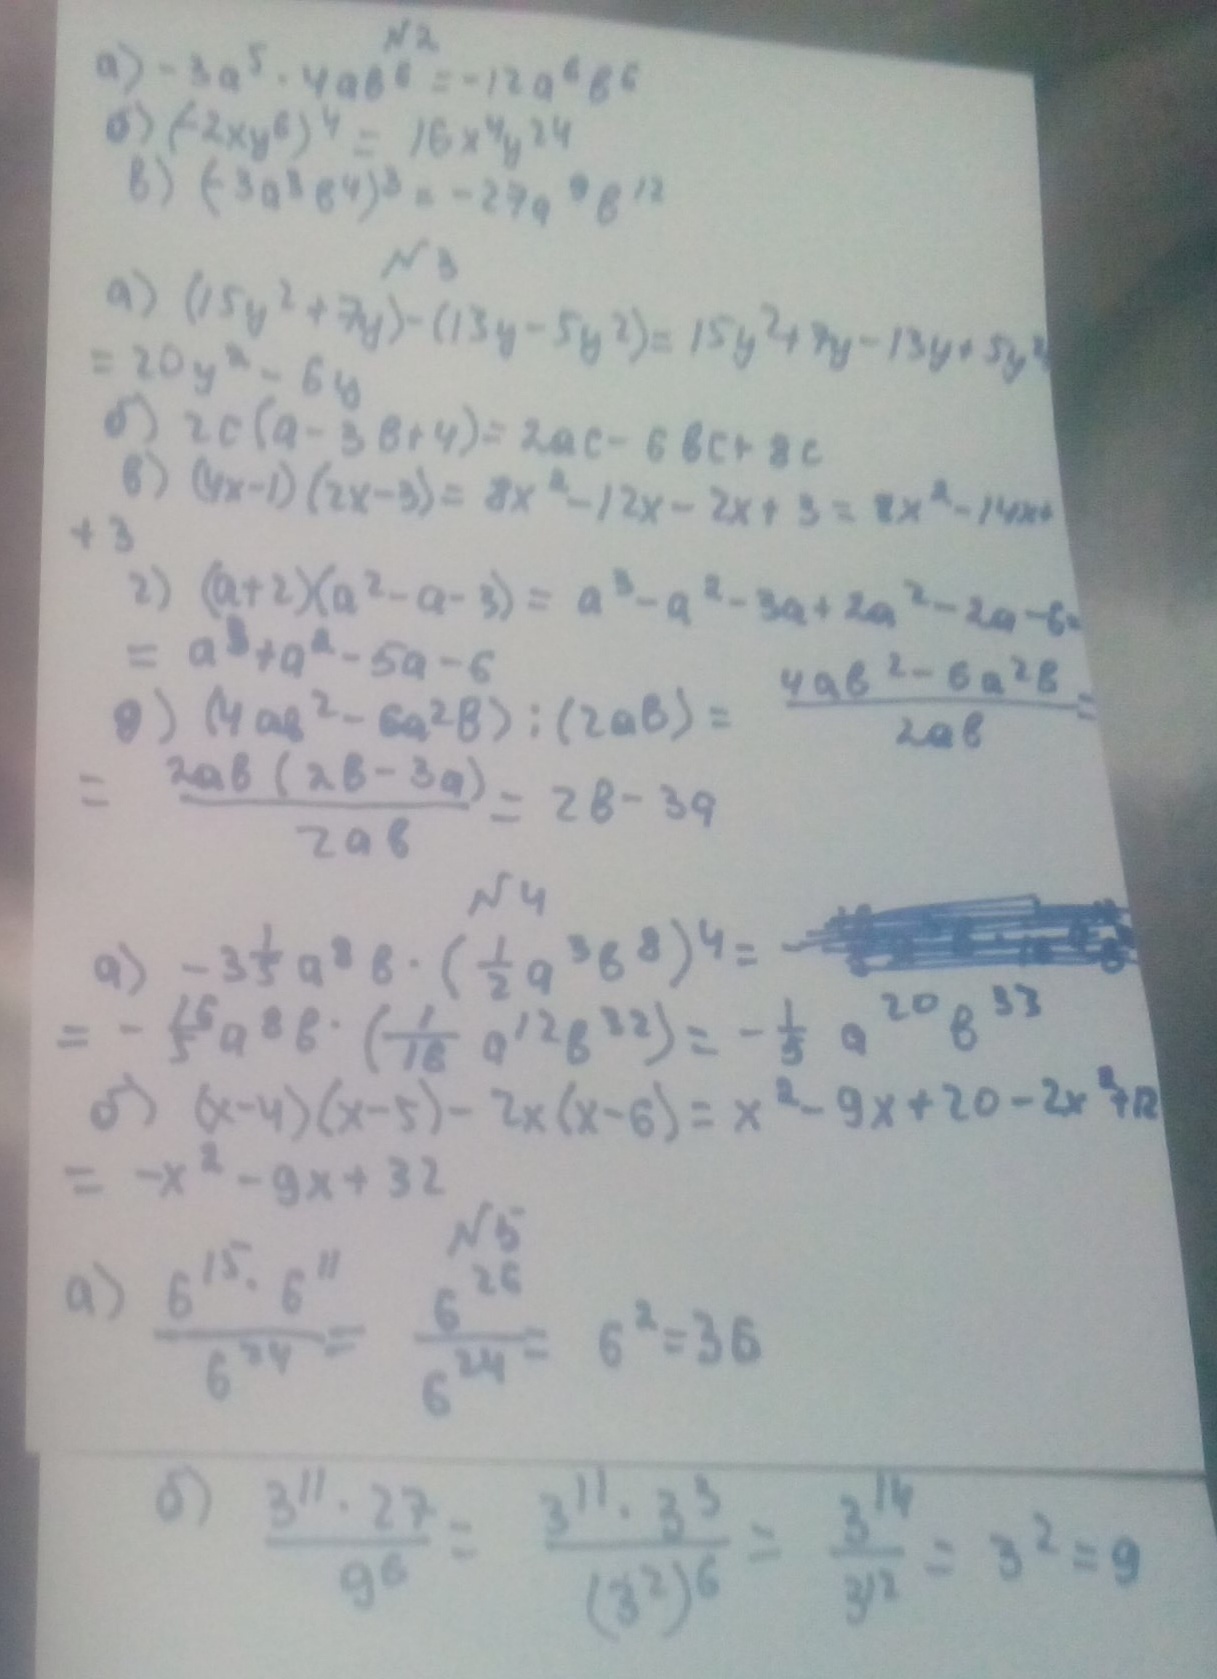 №2
а) -3a⁵ · 4ab⁶ = -12a⁶b⁶
б) (-2xy⁶)⁴ = 16x⁴y²⁴
в) (-3a³b⁴)³ = -27a⁹b¹²
№3
а) (15y²+7y)-(13y-5y²)=15y²+7y-13y+5y²
= 20y² - 6y
б) 2c(a-3b+4)=2ac-6bc+8c
в) (4x-1)(2x-3)=8x²-12x-2x+3=8x²-14x+
+3
г) (a+2)(a²-a-3)=a³-a²-3a+2a²-2a-6=
= a³+a²-5a-6
д) (4ab²-6a²b):(2ab)= (4ab²-6a²b)/(2ab) =
= 2ab(2b-3a)/(2ab) = 2b-3a
№4
а) -3 1/5 a⁸b·(1/2 a³b⁸)⁴= -
= -16/5 a⁸b·(1/16 a¹²b³²)= -1/5 a²⁰b³³
б) (x-4)(x-5)-2x(x-6)=x²-9x+20-2x²+12
= -x²-9x+32
№5
а) (6¹⁵·6¹¹)/6²⁴ = 6²⁶/6²⁴ = 6²=36
б) (3¹¹·27)/9⁶ = (3¹¹·3³)/(3²)⁶ = 3¹⁴/3¹² = 3²=9